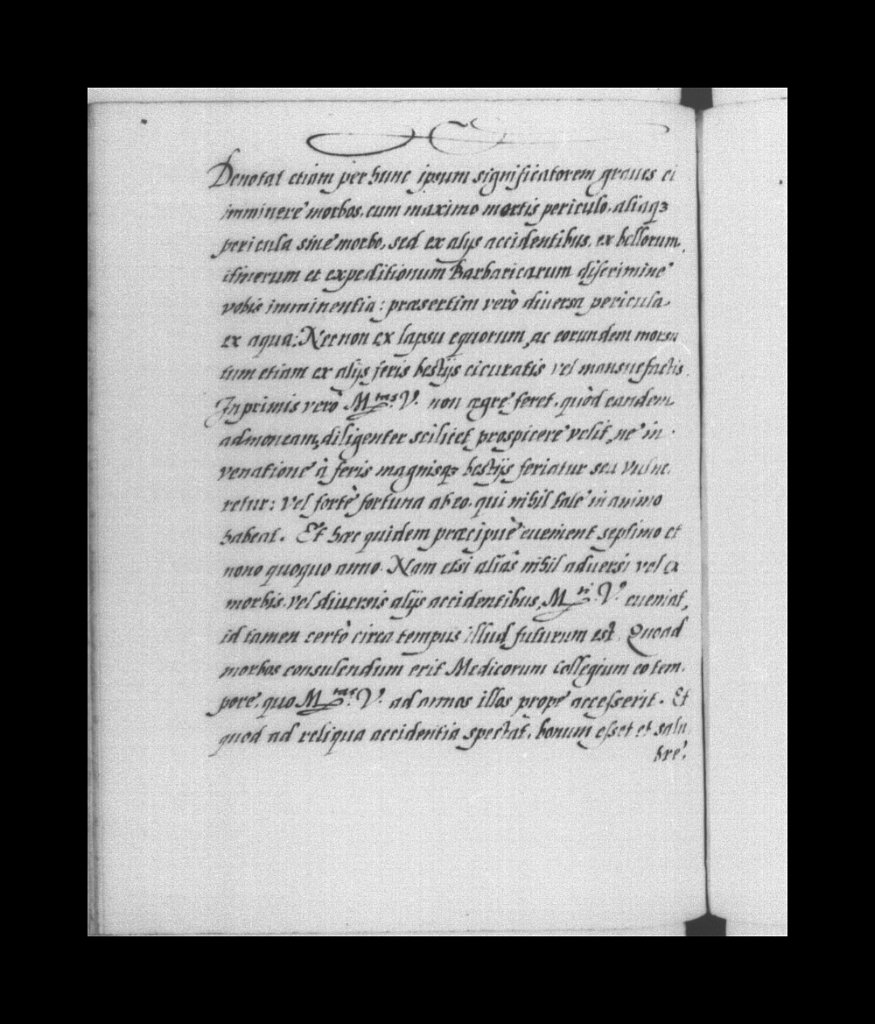 Denotat etiam per hunc ipsum significatorem graues ei
imminere morbos, cum maximo mortis periculo, aliaqȝ
pericula sine morbo, sed ex alijs accidentibus, ex bellorum,
itinerum et expeditionum Barbaricarum discrimine
vobis imminentia: præsertim verò diuersa pericula
ex aqua: Necnon ex lapsu equorum, ac eorundem morsu
tum etiam ex alijs feris bestijs cicuratis vel mansuefactis.
Inprimis verò M.tas V. non ægrè feret, quòd eandem
admoneam, diligenter scilicet prospicere velit, ne in
venatione à feris magnisqȝ bestijs feriatur seu vulne,
retur: vel fortè fortuna ab eo, qui nihil tale in animo
habeat. Et hæc quidem præcipuè euenient septimo et
nono quoquo anno. Nam etsi aliàs nihil aduersi vel ex
morbis, vel diuersis alijs accidentibus, M.ti V. eueniat,
id tamen certò circa tempus illud futurum est. Quoad
morbos consulendum erit Medicorum collegium eo tem,
pore, quo M.tas V. ad annos illos propè accesserit. Et
quod ad reliqua accidentia spectat, bonum esset et salu
bre,